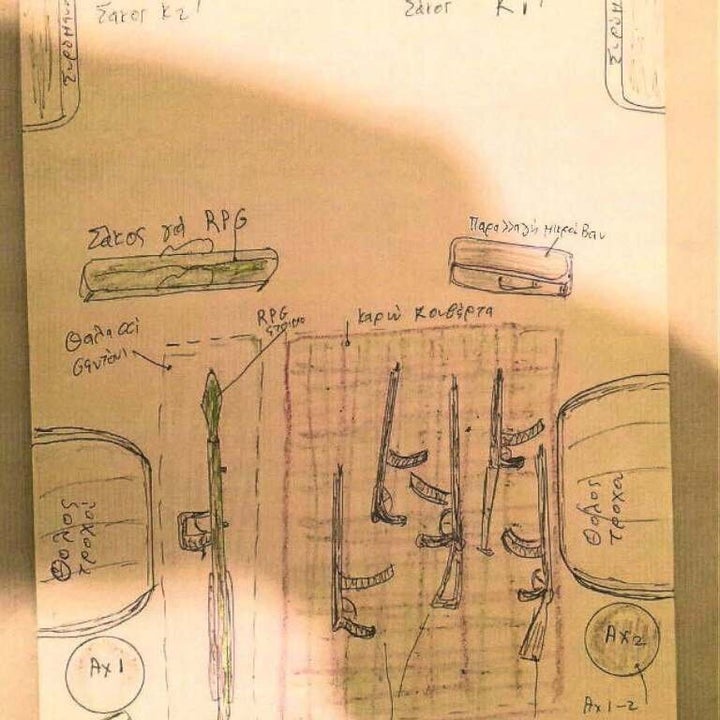 Σάκος Κ2!
Σάκος Κ1!
Σάκος για RPG
Παραλλαγή μικρού Βαν
RPG
έτοιμο
καρώ κουβέρτα
Θαλασσί
σεντόνι
Θόλος
τροχού
Θόλος
τροχού
Αχ1
Αχ2
Αχ1-2